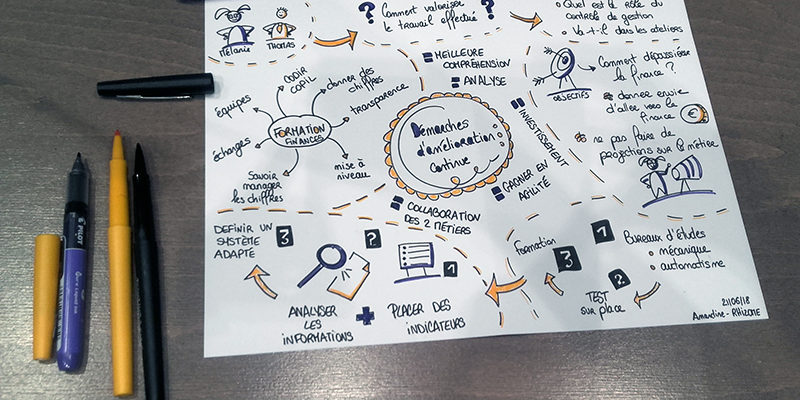 Mélanie
THOMAS
?
Comment valoriser
le travail effectué
?
• Quel est le rôle du
contrôle de gestion
• Va-t-il dans les ateliers
= MEILLEURE
COMPRÉHENSION
= ANALYSE
= INVESTISSEMENT
= GAGNER EN
AGILITÉ
= COLLABORATION
DES 2 MÉTIERS
Démarches
d'amélioration
continue
CODIR
COPIL
donner des
chiffres
transparence
équipes
FORMATION
FINANCES
échanges
mise à
niveau
Savoir
manager
les chiffres
OBJECTIFS
Comment dépoussiérer
la finance ?
donner envie
d'aller vers la
finance
€
ne pas faire de
projections sur le métier
DEFINIR UN
SYSTÈME
ADAPTÉ
3
?
1
ANALYSER
LES
INFORMATIONS
+
PLACER DES
INDICATEURS
Formation
3
1
?
TEST
sur place
Bureaux d'études
• mécanique
• automatisme
21/06/18
Amandine - RHIZOME
PILOT